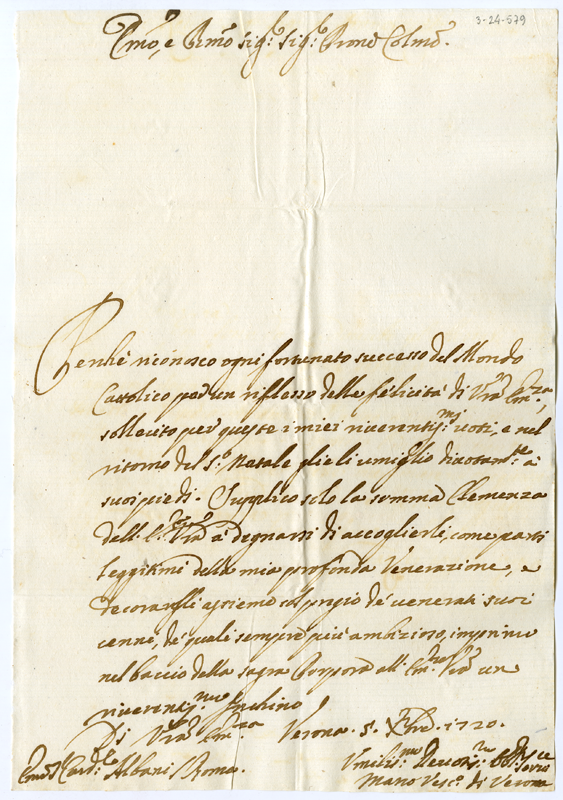 3-24-579
Em̃o, e Rm̃o Sig.r Sig.r Prone Colmo.
Perche riconosco ogni fortunato successo del Mondo
Cattolico per un riflesso delle felicità di Vra Em.za,
sollecito per queste i miei riverentiss.mi voti, e nel
ritorno del S.o Natale glieli umiglio divotam.te à
suoi piedi. Supplico solo la somma Clemenza
dell' E. Vra à degnarsi di accoglierli, come parti
leggitimi della mia profonda Venerazione, e
decorarli assieme col pregio de' venerati suoi
cenni, de' quali sempre più ambizioso, imprimo
nel baccio della sagra Porpora all' Em. Vra un
riverentiss.mo Inchino
Di Vra Em.za Verona 5. Xbre. 1720.
Em̃o S. Card.le Albani Roma.
Umiliss.mo Devotiss.mo Obb. Serv.re
Marco Vesc.o di Verona